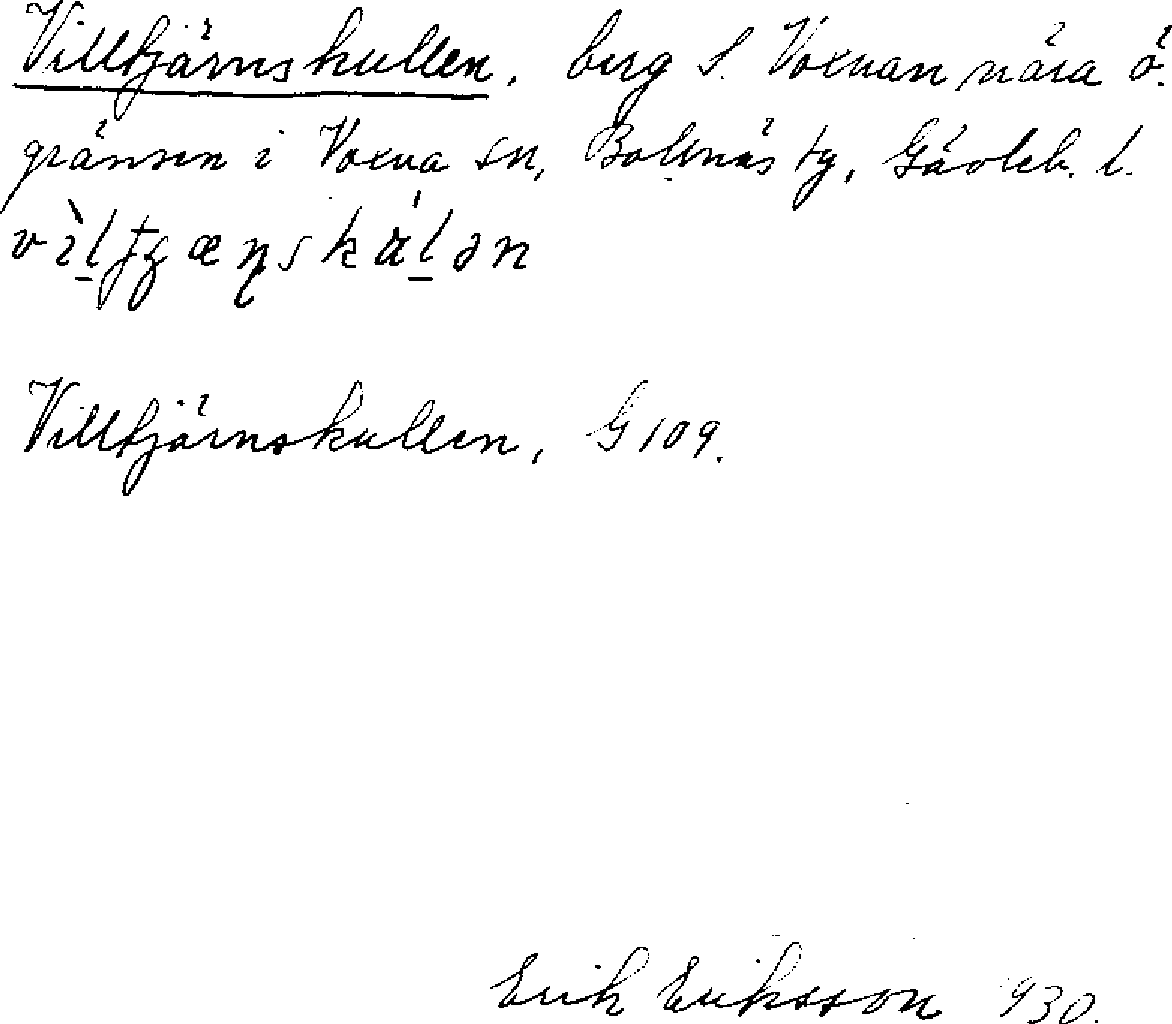 Villtjärnskullen, berg S. Voxnan nära ö.
gränsen i Voxna sn, Bollnäs tg, Gävleb. l.
Villtjärnskullen, G 109.
Erik Eriksson 1930.